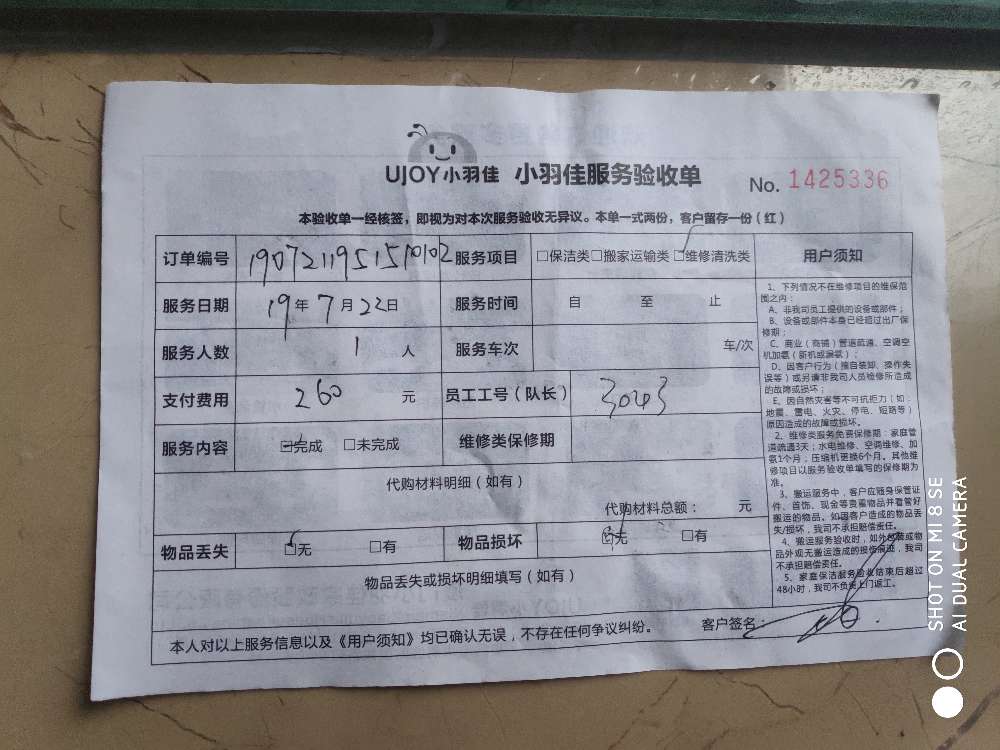 UJOY小羽佳 小羽佳服务验收单 No. 1425336
本验收单一经核签，即视为对本次服务验收无异议。本单一式两份，客户留存一份（红）
订单编号 190721195151010102 服务项目 □保洁类□搬家运输类☑维修清洗类
服务日期 19年7月22日 服务时间 自 至 止
服务人数 1人 服务车次 车/次
支付费用 260 元 员工工号（队长） 3043
服务内容 ☑完成 □未完成 维修类保修期
代购材料明细（如有）
代购材料总额： 元
物品丢失 ☑无 □有 物品损坏 ☑无 □有
物品丢失或损坏明细填写（如有）
本人对以上服务信息以及《用户须知》均已确认无误，不存在任何争议纠纷。 客户签名：
用户须知
1、下列情况不在维修项目的维保范
围之内：
A、非我司员工提供的设备或部件；
B、设备或部件本身已经超过出厂保
修期；
C、商业（商铺）管道疏通、空调空
机加氨（新机或漏氨）；
D、因客户行为（擅自装卸、操作失
误等）或另请非我司人员检修所造成
的故障或损坏；
E、因自然灾害等不可抗拒力（如：
地震、雷电、火灾、停电、短路等）
原因造成的故障或损坏。
2、维修类服务免费保修期：家庭管
道疏通3天；水电维修、空调维修、加
氨1个月；压缩机更换6个月。其他维
修项目以服务验收单填写的保修期为
准。
3、搬运服务中，客户应随身保管证
件、首饰、现金等贵重物品并看管好
搬运的物品。如因客户造成的物品丢
失/损坏，我司不承担赔偿责任。
4、搬运服务验收时，如外包装或物
品外观无搬运造成的损伤痕迹，我司
不承担赔偿责任。
5、家庭保洁服务验收结束后超过
48小时，我司不负责上门返工。
SHOT ON MI 8 SE
AI DUAL CAMERA